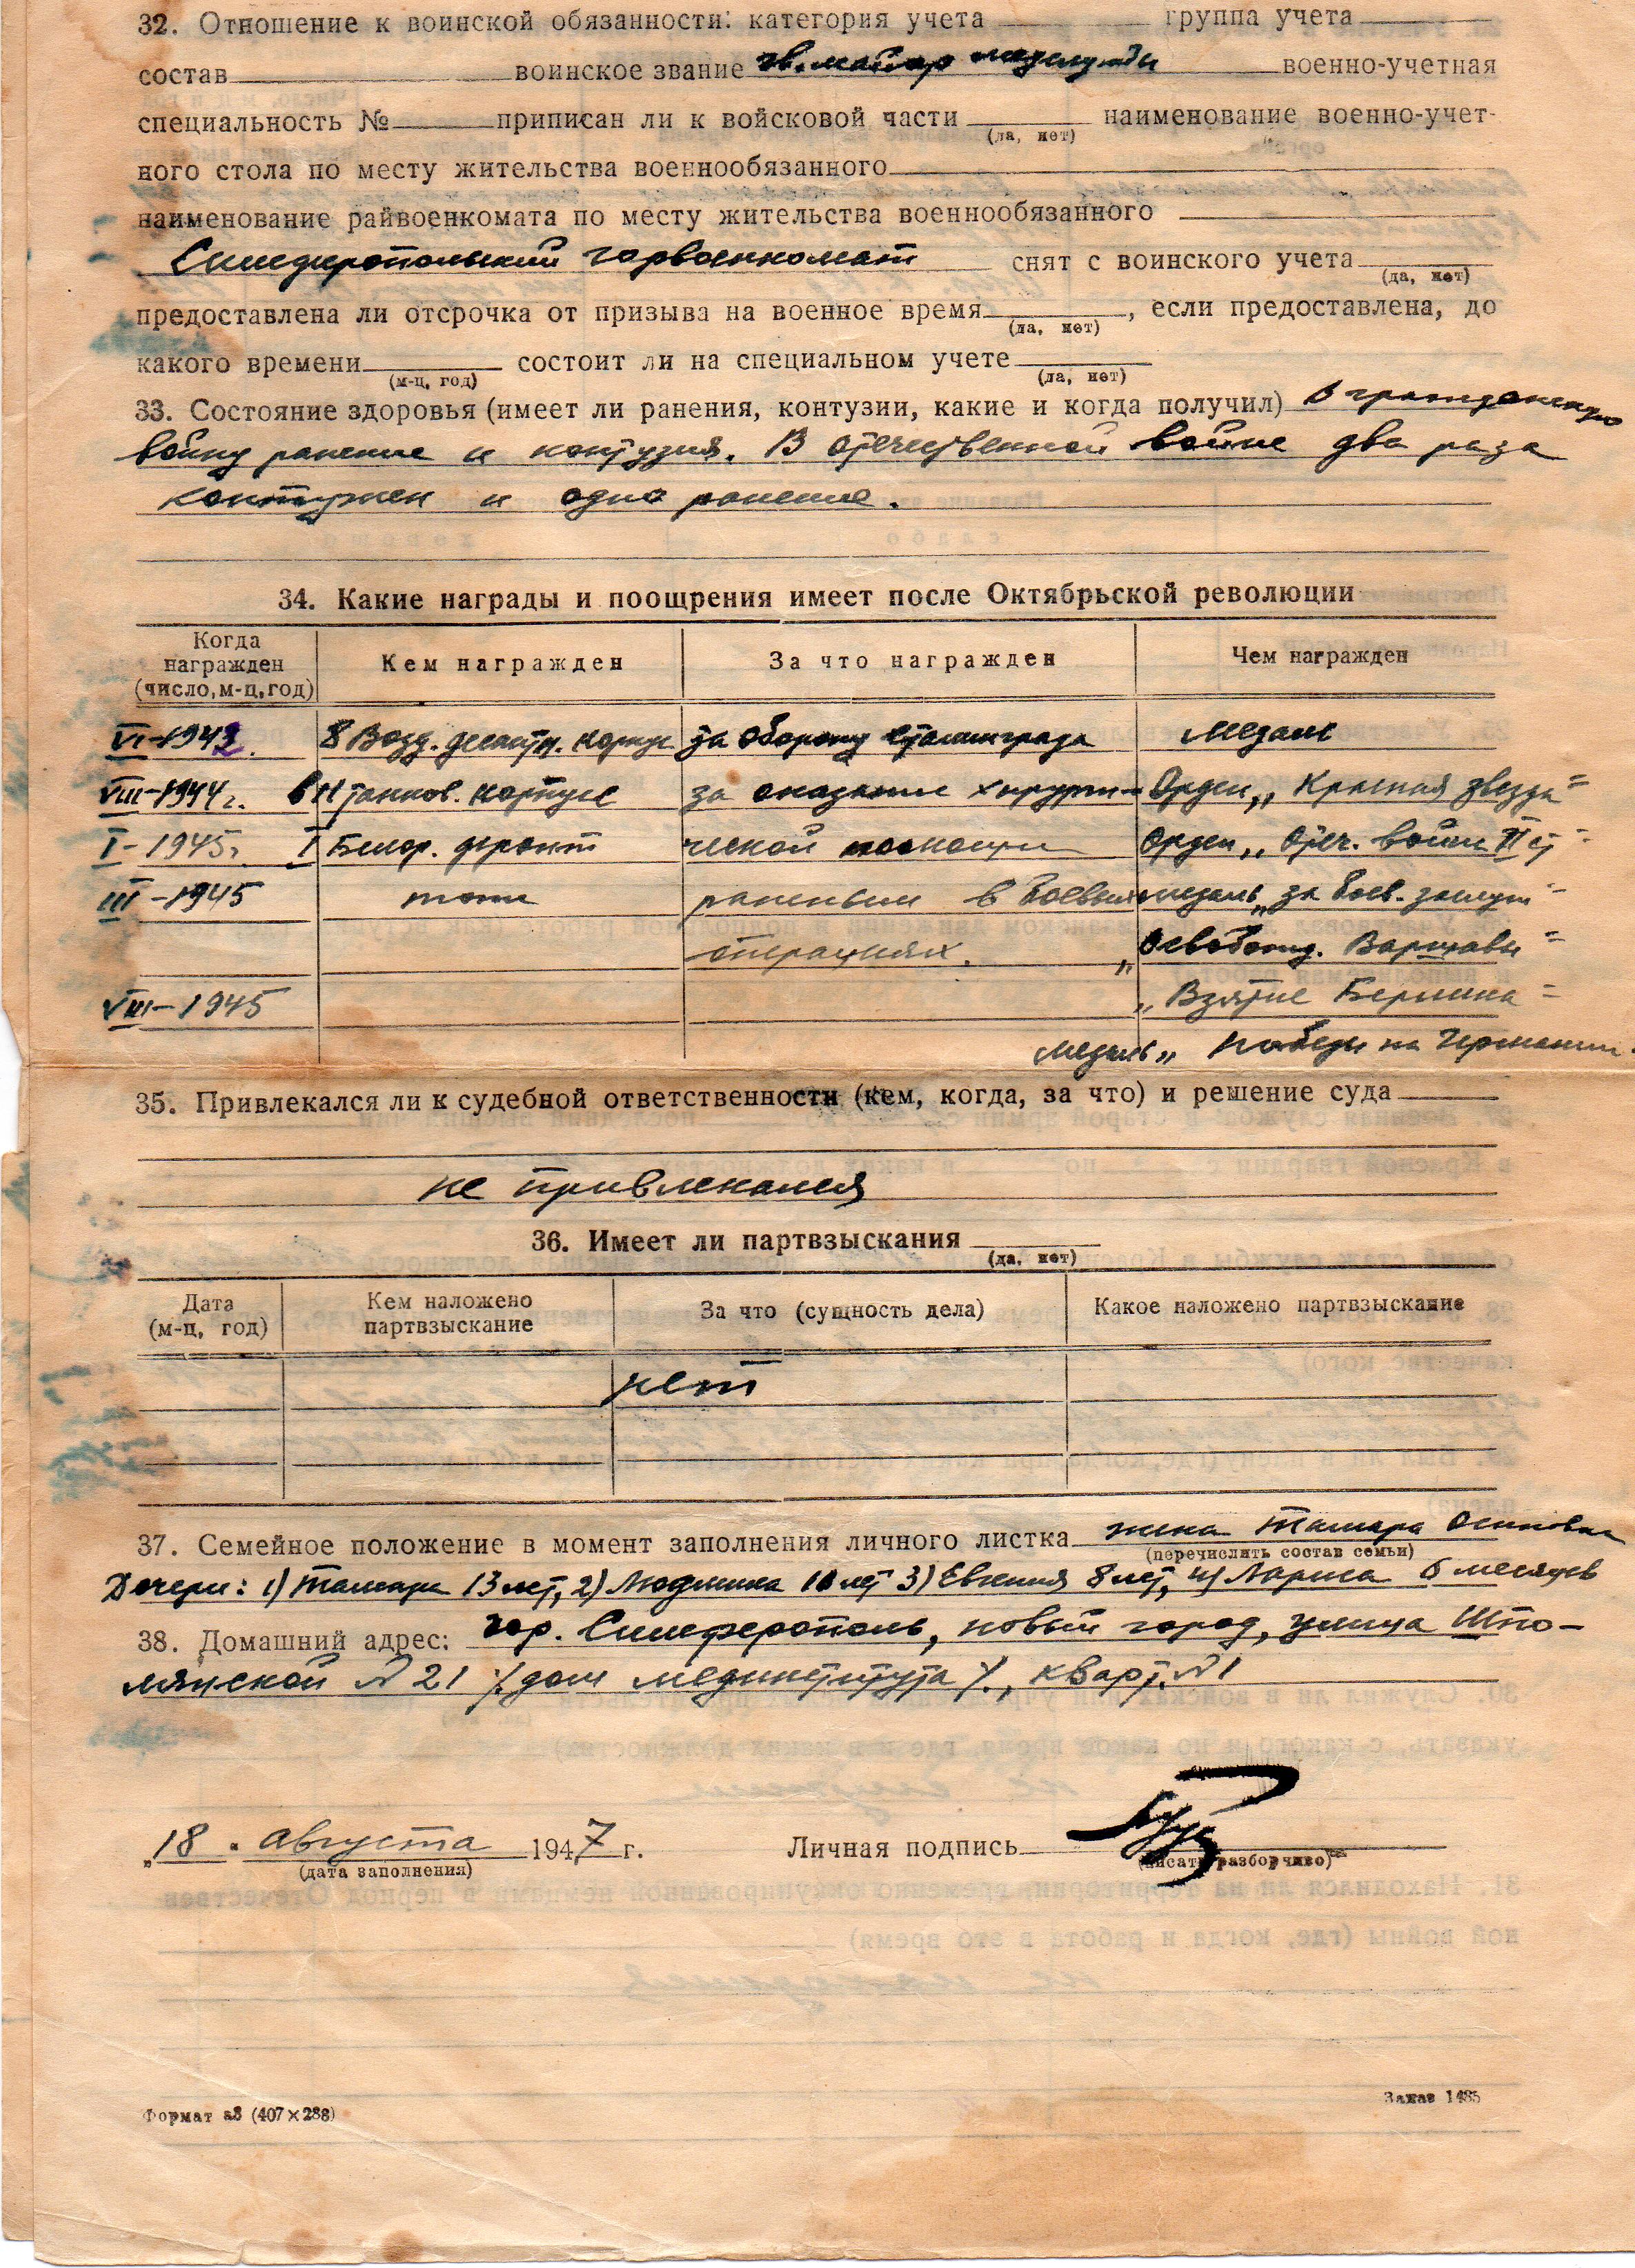 32. Отношение к воинской обязанности: категория учета группа учета
состав воинское звание гв. майор медслужбы военно-учетная
специальность № приписан ли к войсковой части наименование военно-учет-
(да, нет)
ного стола по месту жительства военнообязанного
наименование райвоенкомата по месту жительства военнообязанного
Симферопольский горвоенкомат снят с воинского учета
(да, нет)
предоставлена ли отсрочка от призыва на военное время , если предоставлена, до
(да, нет)
какого времени состоит ли на специальном учете
(м-ц, год) (да, нет)
33. Состояние здоровья (имеет ли ранения, контузии, какие и когда получил) в гражданскую
войну ранение и контузия. В отечественной войне два раза
контужен и одно ранение.
34. Какие награды и поощрения имеет после Октябрьской революции
Когда награжден (число, м-ц, год) Кем награжден За что награжден Чем награжден
VI-1942. 8 Возд. десатн. корпус За оборону Сталинграда Медаль
VIII-1944 г. в 11 танков. корпусе за оказание хирурги- Орден „Красная звезда"
I-1945 г. I Белор. фронт ческой помощи Орден „Отеч. войны II ст"
III-1945 тоже раненым в боевых медаль „за боев. заслуги"
операциях. „Освобожд. Варшавы"
VIII-1945 „Взятие Берлина"
медаль „Победы на Германии.
35. Привлекался ли к судебной ответственности (кем, когда, за что) и решение суда
не привлекался
36. Имеет ли партвзыскания
(да, нет)
Дата (м-ц, год) Кем наложено партвзыскание За что (сущность дела) Какое наложено партвзыскание
нет
37. Семейное положение в момент заполнения личного листка жена Тамара Осиповна
(перечислить состав семьи)
Дочери: 1) Тамара 13 лет, 2) Людмила 10 лет 3) Евгения 8 лет, 4) Лариса 6 месяцев
38. Домашний адрес: гор. Симферополь, новый город, улица Шпо-
лянской № 21 /дом мединститута/, кварт. № 1
„18" августа 1947 г. Личная подпись
(дата заполнения) (писать разборчиво)
Формат а3 (407×288) Заказ 1485